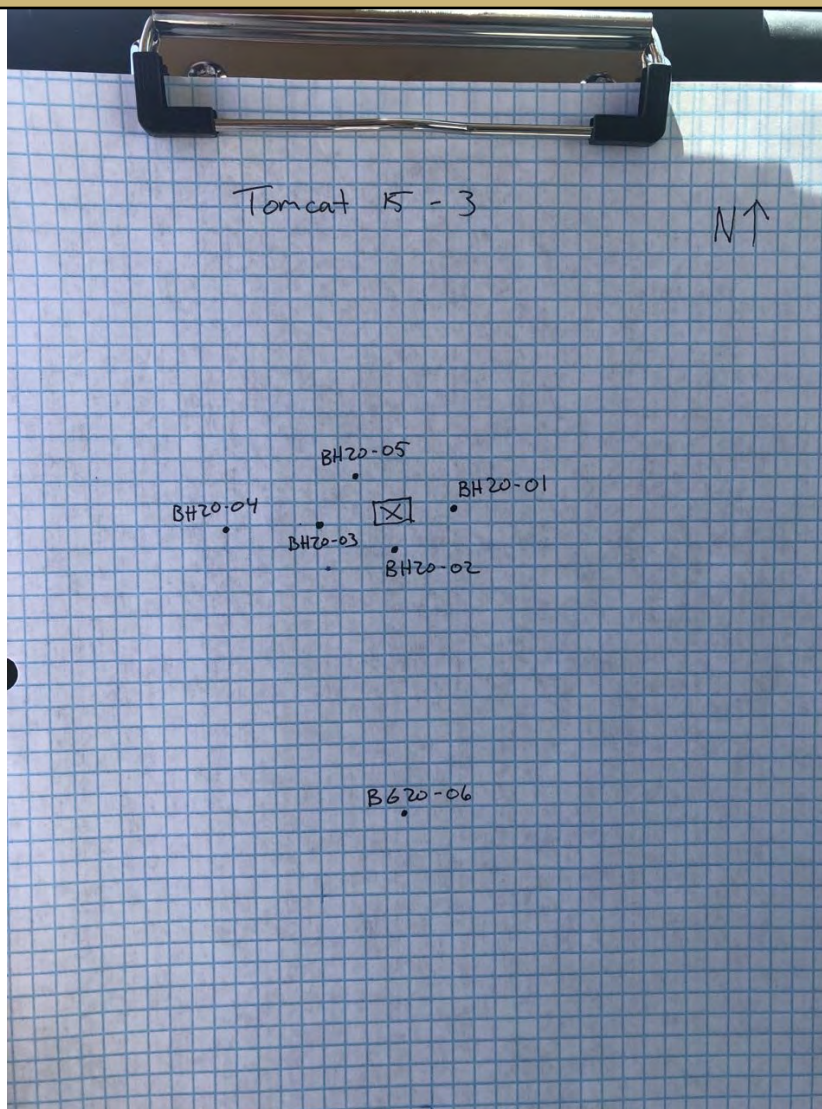 Tomcat 15 - 3
N↑
BH20-05
BH20-01
BH20-04
BH20-03
BH20-02
BG20-06